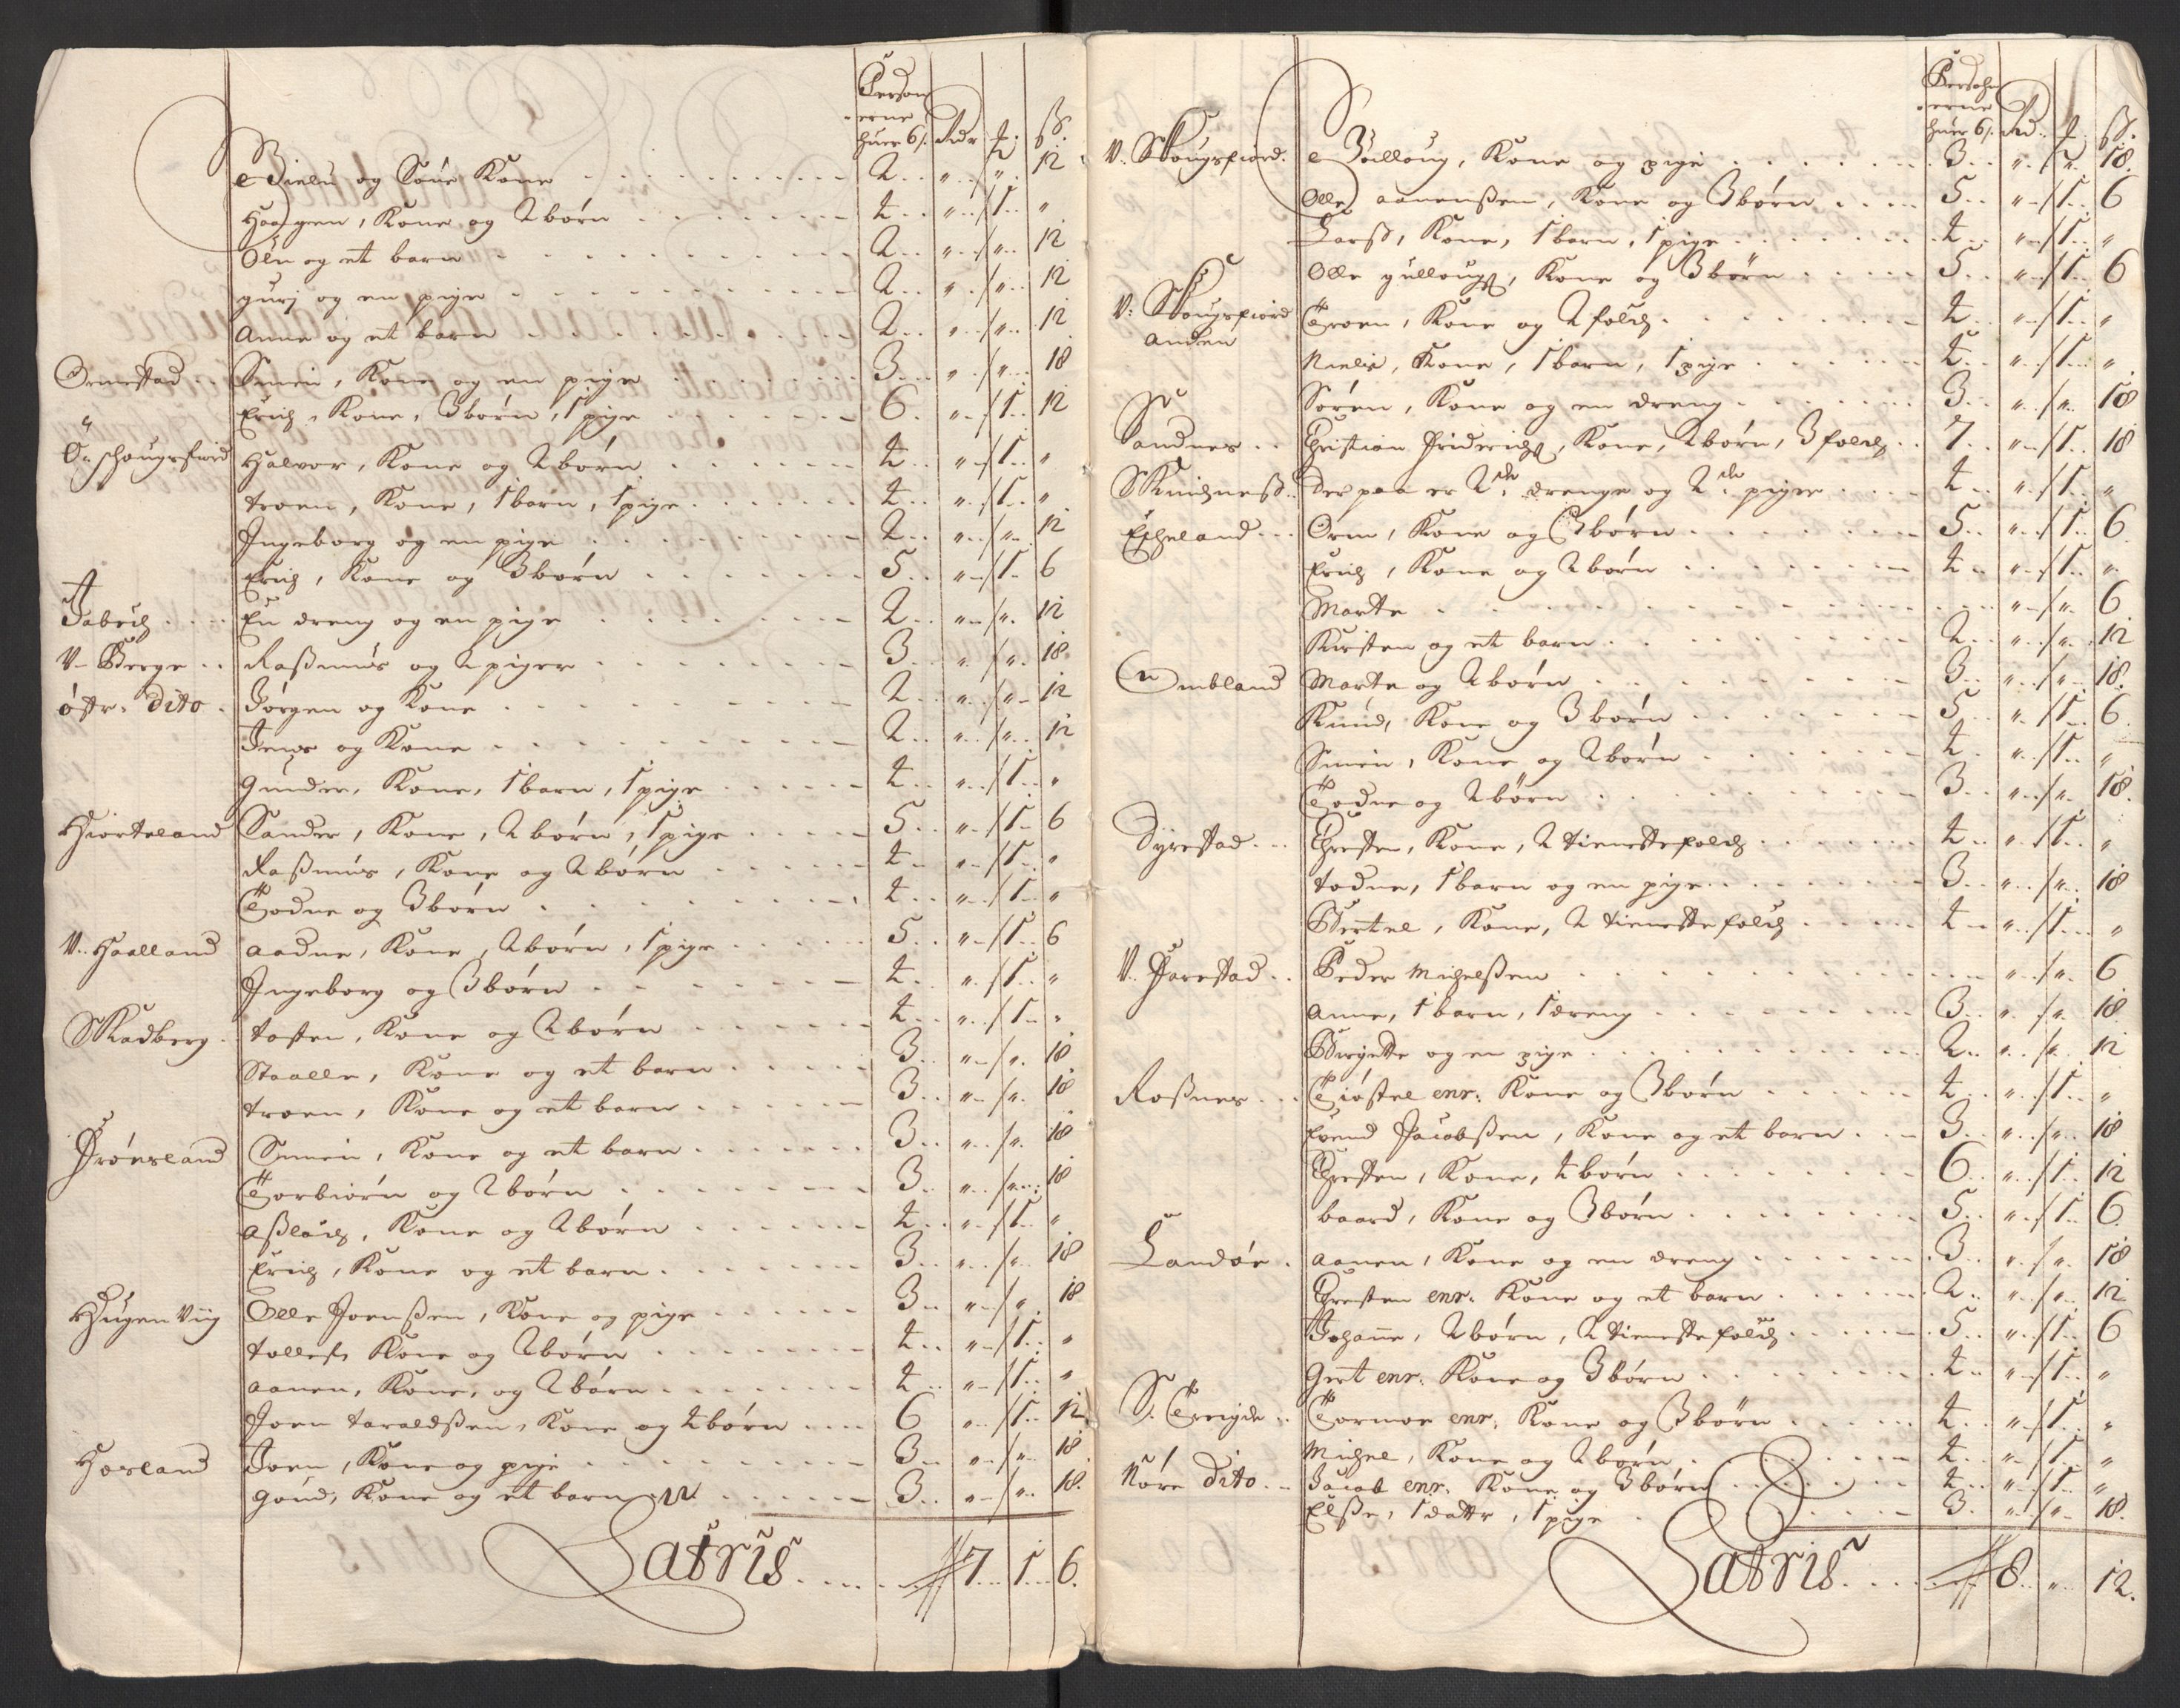 Person
erne
huer 6/. Rdr ₰. ſß.
Sielu og Søue Kone 2 „ „ 12
Haagen, Kone og 2 børn 4 „ 1 „
Olu og et barn 2 „ „ 12
gurj og en pige 2 „ „ 12
Anne og et barn 2 „ „ 12
Ormestad Simen, Kone og en pige 3 „ „ 18
Erich, Kone, 3 børn, 1 pige 6 „ 1 12
Ø. schougsfiord Halvor, Kone og 2 børn 4 „ 1 „
troen, Kone, 1 barn, 1 pige 4 „ 1 „
Ingeborg og en pige 2 „ „ 12
Erich, Kone og 3 børn 5 „ 1 6
Jaberg En dreng og en pige 2 „ „ 12
V. Berge Raßmus og 2 piger 3 „ „ 18
østr. Dito Jørgen og Kone 2 „ „ 12
Jens og Kone 2 „ „ 12
Gunder, Kone, 1 barn, 1 pige 4 „ 1 „
Hiorteland Sander, Kone, 2 børn, 1 pige 5 „ 1 6
Raßmus, Kone og 2 børn 4 „ 1 „
Todne og 3 børn 4 „ 1 „
V. Haalland aadne, Kone, 2 børn, 1 pige 5 „ 1 6
Ingeborg og 3 børn 4 „ 1 „
Skadberg tosten, Kone og 2 børn 4 „ 1 „
Staalle, Kone og et barn 3 „ „ 18
troen, Kone og et barn 3 „ „ 18
Frøusland Simen, Kone og et barn 3 „ „ 18
Torbiørn og 2 børn 3 „ „ 18
Aßlach, Kone og 2 børn 4 „ 1 „
Erich, Kone og et barn 3 „ „ 18
Haugen Viig Olle Joenßen, Kone og pige 3 „ „ 18
tollef, Kone og 2 børn 4 „ 1 „
aanen, Kone, og 2 børn 4 „ 1 „
Joen taraldßen, Kone og 4 børn 6 „ 1 12
Horland Joen, Kone og pige 3 „ „ 18
Goud, Kone og et barn 3 „ „ 18.
Latris 7 1 6.
Persohn
erne
huer 6/. Rd. ₰. ſß.
V. Skougsfiord. Gulloug, Kone og pige 3 „ „ 18.
Olle aanenßen, Kone og 3 børn 5 „ 1 6
Larß, Kone, 1 barn, 1 pige 4 „ 1 „
Olle gullougs, Kone og 3 børn 5 „ 1 6
V: Skougsfiord Troen, Kone og 2 folch 4 „ 1 „
anden Nielß, Kone, 1 barn, 1 pige 4 „ 1 „
Søren, Kone og en dreng 3 „ „ 18
Sandnes Christian Friderichs, Kone, 2 børn, 3 folch 7 „ 1 18
Skiechneß der paa er 2de drenge og 2de piger 4 „ 1 „
Egheland Orm, Kone og 3 børn 5 „ 1 6
Erich, Kone og 2 børn 4 „ 1 „
Marte „ „ 6
Kirsten og et barn 2 „ „ 12
Ombland Marte og 2 børn 3 „ „ 18.
Knud, Kone og 3 børn 5 „ 1 6
Simen, Kone og 2 børn 4 „ 1 „
Todne og 2 børn 3 „ „ 18.
Dyrestad Chresten, Kone, 2 tienestefolch 4 „ 1 „
todne, 1 barn og en pige 3 „ „ 18
Bertel, Kone, 2 tienestefolch 4 „ 1 „
V. Farestad Peder Michelßen „ „ 6
Anne, 1 barn, 1 dreng 3 „ „ 18
Birgitte og en pige 2 „ „ 12
Roßnes Tiøstel enr. Kone og 3 børn 4 „ 1 „
Svend Jacobßen, Kone og et barn 3 „ „ 18
Chresten, Kone, 4 børn 6 „ 1 12
baard, Kone og 3 børn 5 „ 1 6
Landøe aanen, Kone og en dreng 3 „ „ 18
Chresten enr. Kone og et barn 2 „ „ 12
Johanne, 2 børn, 2 tienestefolch 5 „ 1 6
Gert enr. Kone og 3 børn 4 „ 1 „
S. Tregde Tormoe enr. Kone og 3 børn 4 „ 1 „
Michel, Kone og 2 børn 4 „ 1 „
Nøre Dito Jacob enr. Kone og 3 børn 4 „ 1 „
Elße, 1 dattr, 1 pige 3 „ „ 18.
Latris 8 „ 12.